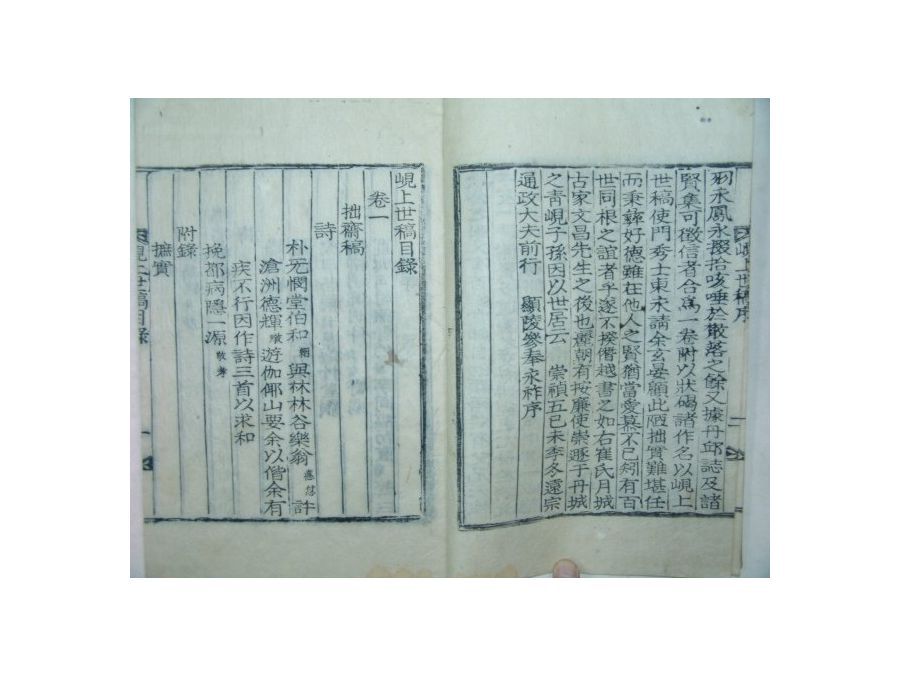 嗣永鳳永掇拾咳唾於散落之餘又據丹邱誌及諸
賢集可徵信者合爲一卷附以狀碣諸作名以峴上
世稿使門秀士東来請余玄晏顧此陋拙實難堪任
而秉彝好德雖在他人之賢猶當愛慕不已矧有百
世同根之誼者乎遂不揆僭越書之如右崔氏月城
古家文昌先生之後也麗朝有按廉使崇
于丹城
之靑峴子孫因以世居云 崇禎五己未季冬遠宗
通政大夫前行 顯陵參奉永祚序
峴上世稿序
峴上世稿目錄
卷一
拙齋稿
詩
朴无悶堂伯和絪與林林谷樂翁 許
滄洲德輝燉遊伽倻山要余以偕余有
疾不行因作詩三首以求和
挽郭病隱一源
附錄
摭實
峴上世稿目錄